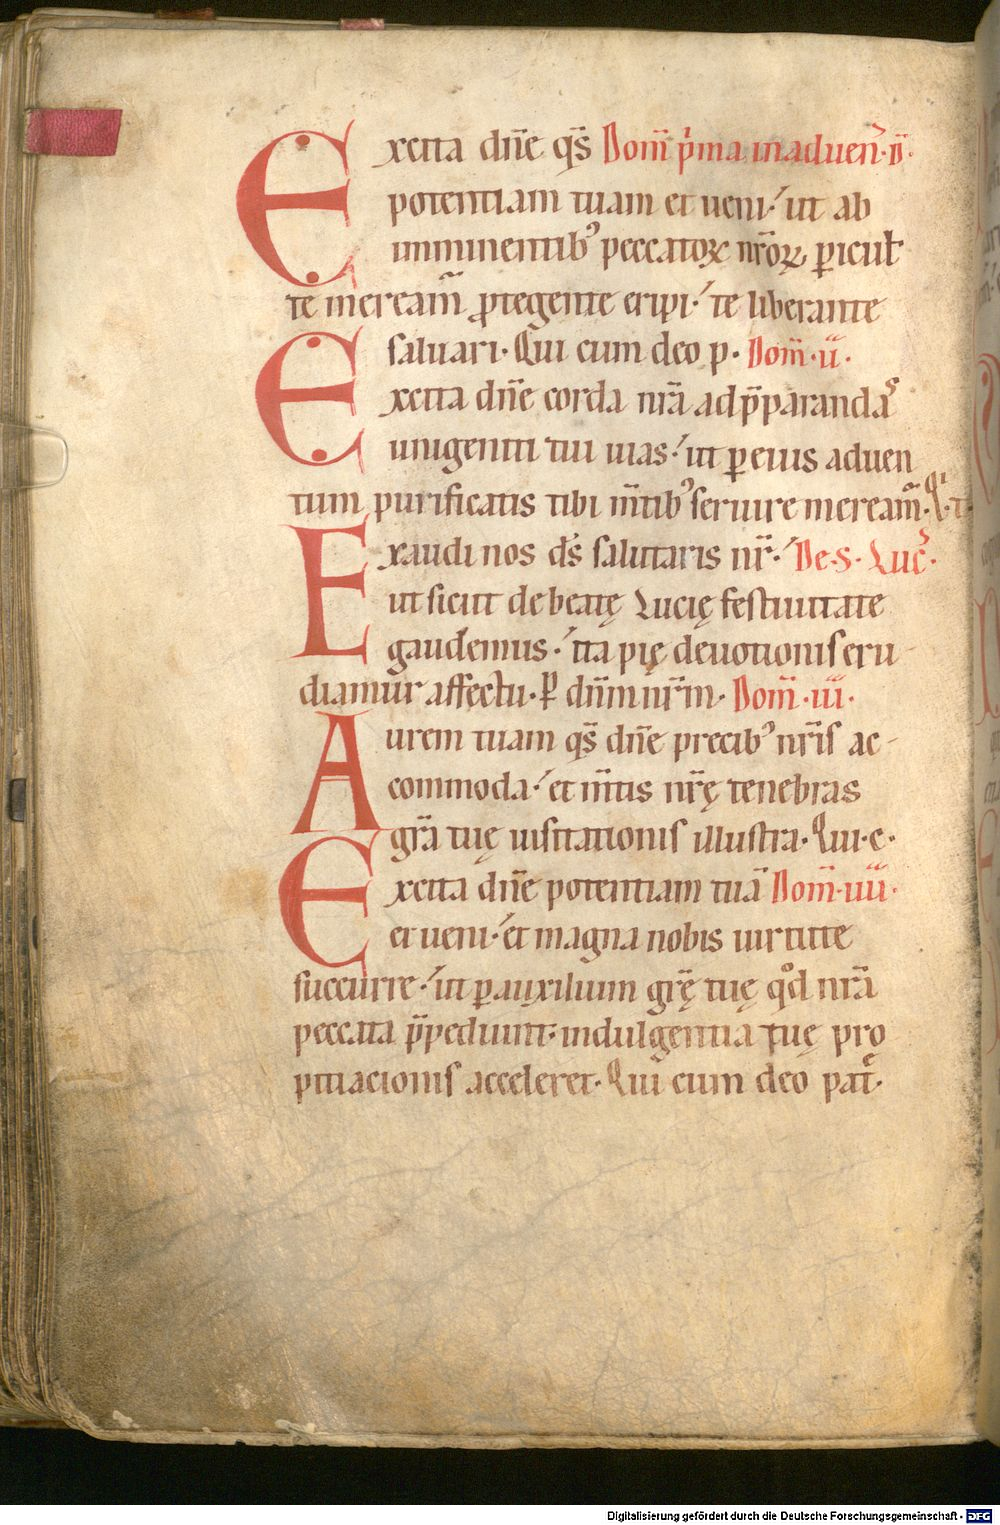 Excita dn̄e qs̄ Domī p̍ma in aduen̄·D̄·
potentiam tuam et ueni·́ ut ab
imminentib᾿ peccatoꝝ nr̄oꝝ, ꝑicul̄
te meream̄ ꝓtegente eripi·́ te liberante
saluari· Qui cum deo p· Dom̄·ii·
Excita dn̄e corda nr̄a ad p̄paranda᾿
unigeniti tui uias·́ ut ꝑ eius aduen
tum purificatis tibi m̄tib᾿ seruire meream̄· Q·t
Exaudi nos ds̄ salutaris nr̄·́ De·S· Luc̄·
ut sicut de beatę Lucię festiuitate
gaudemus·́ ita pię deuotionis eru-
diamur affectu· P̲ dn̄m nr̄m· Dom̄·iii·
Aurem tuam qs̄ dn̄e precib᾿ nr̄is ac-
commoda·́ et m̄tis nr̄ę tenebras
gr̄a tuę uisitationis illustra· Qui·c·
Excita dn̄e potentiam tuā Dom̄·iiii·
et ueni·́ et magna nobis uirtute
succurre·́ ut ꝑ auxilium gr̄ę tuę qd̄ nr̄a
peccata p̄pediunt· indulgentia tuę pro
pitiacionis acceleret· Qui cum deo pat̄·
Digitalisierung gefördert durch die Deutsche Forschungsgemeinschaft - DFG